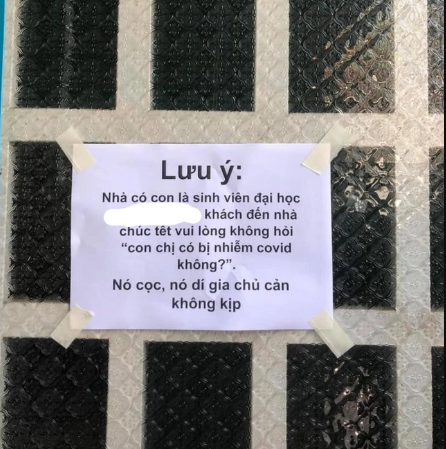 Lưu ý:
Nhà có con là sinh viên đại học
khách đến nhà
chúc têt vui lòng không hỏi
“con chị có bị nhiễm covid
không?”.
Nó cọc, nó dí gia chủ cản
không kịp